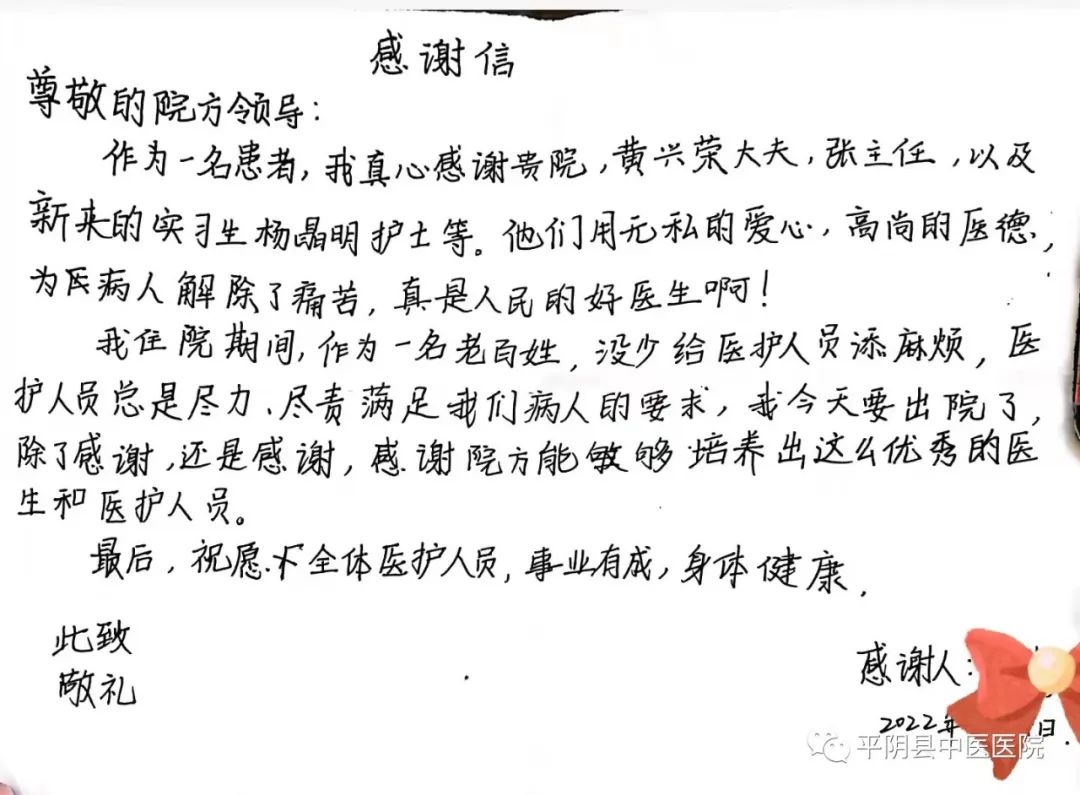 感谢信
尊敬的院方领导：
作为一名患者，我真心感谢贵院，黄兴荣大夫，张主任，以及
新来的实习生杨晶明护士等。他们用无私的爱心，高尚的医德，
为医病人解除了痛苦，真是人民的好医生啊！
我住院期间，作为一名老百姓，没少给医护人员添麻烦，医
护人员总是尽力、尽责满足我们病人的要求，我今天要出院了，
除了感谢，还是感谢，感谢院方能够培养出这么优秀的医
生和医护人员。
最后，祝愿全体医护人员，事业有成，身体健康，
此致
敬礼
感谢人：
2022年 日.
平阴县中医医院